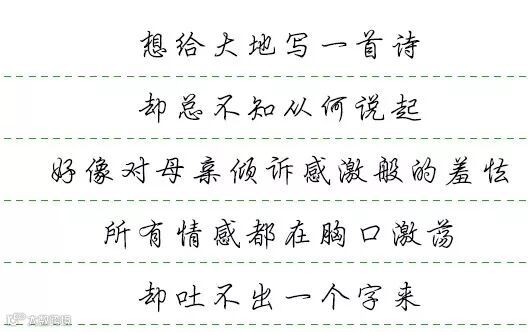 想给大地写一首诗
却总不知从何说起
好像对母亲倾诉感激般的羞怯
所有情感都在胸口激荡
却吐不出一个字来